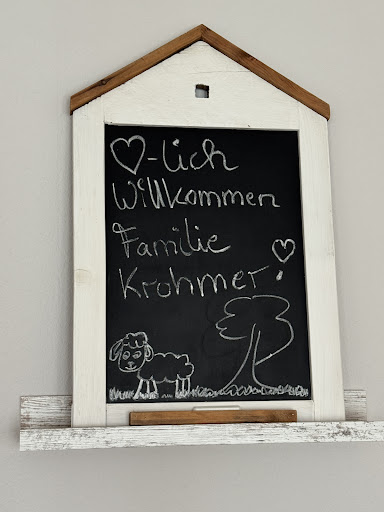 ♡-lich
Willkommen
Familie
Krohmer!